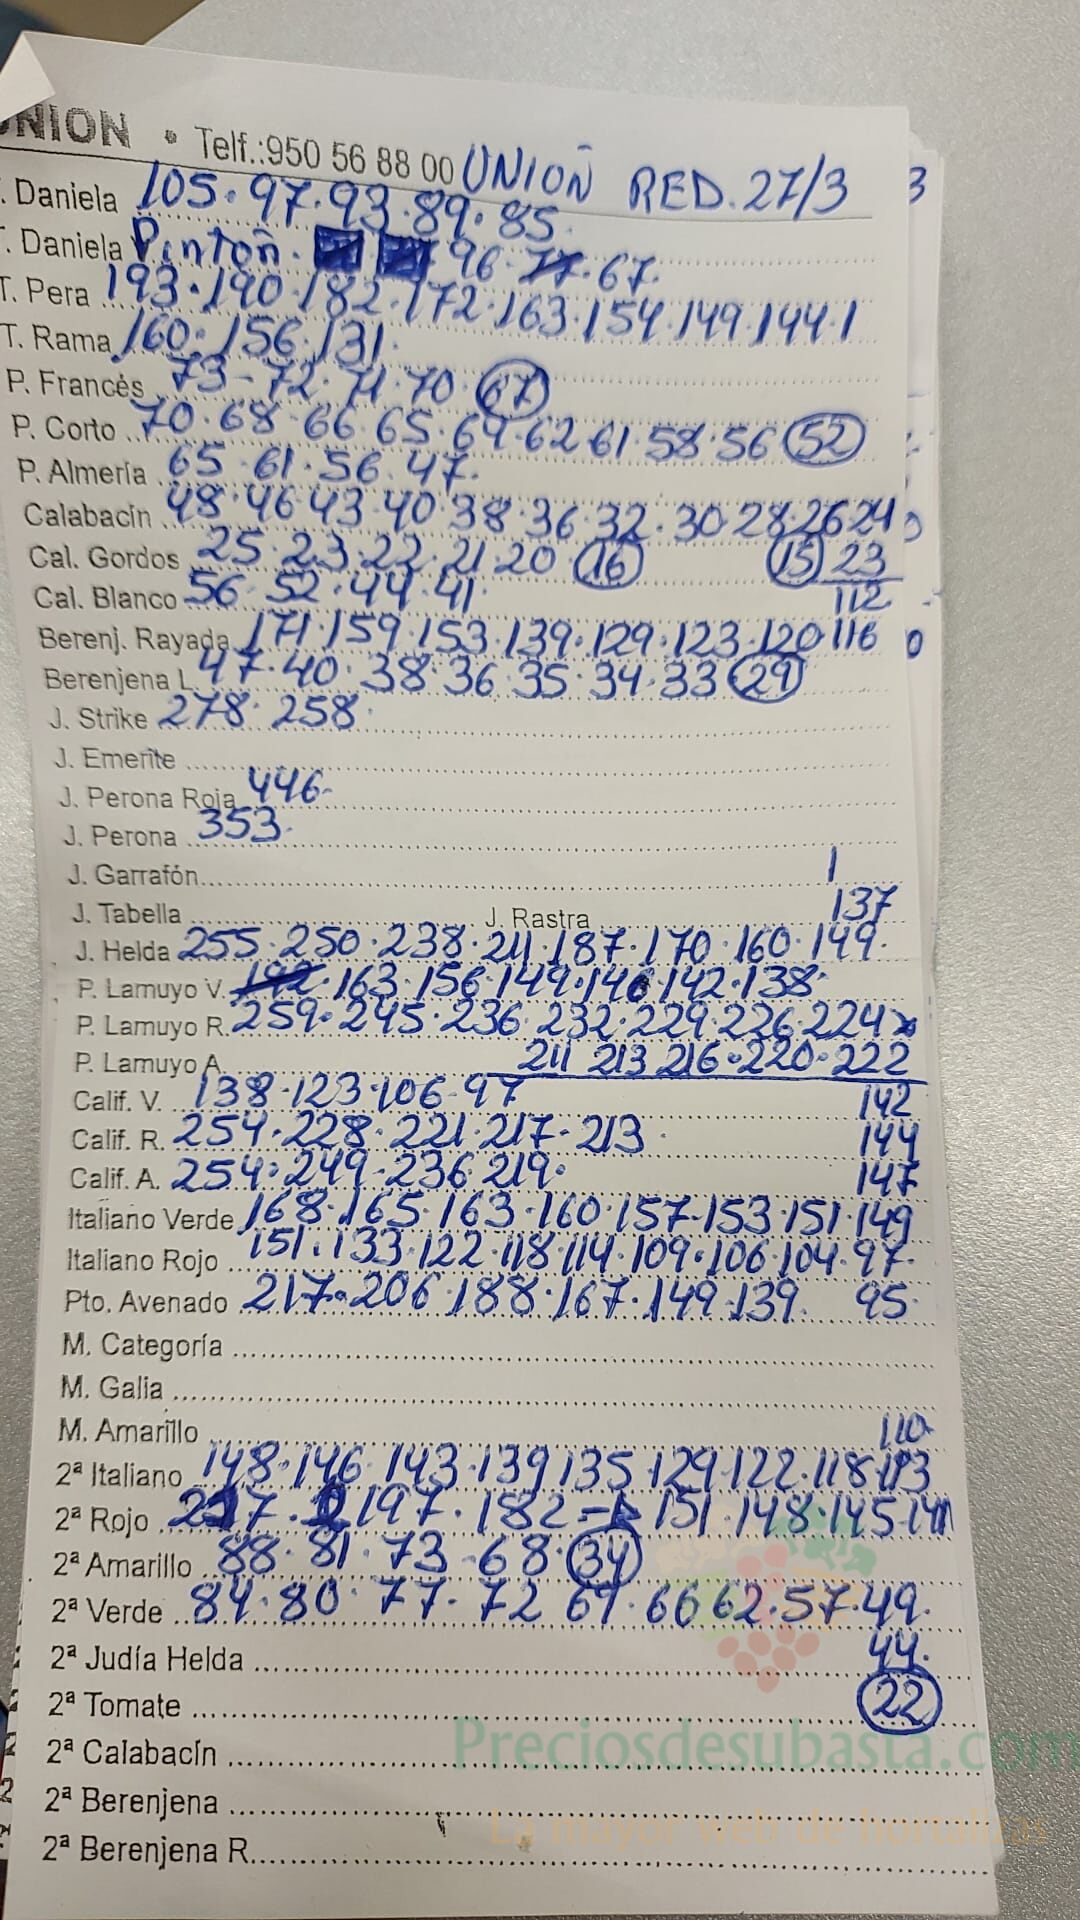 UNION • Telf.:950 56 88 00 UNION RED. 27/3
. Daniela 105.97.93.89.85.
T. Daniela Pinton. 96.77.67.
T. Pera 193.190.182.172.163.154.149.144.1
T. Rama 160.156.131.
P. Francés 73-72.71.70.67
P. Corto 70.68.66.65.64.62 61.58.56 52
P. Almería 65.61.56.47.
Calabacín 48.46.43.40.38.36.32.30.28.26 24
Cal. Gordos 25.23.22.21.20 16 15 23
Cal. Blanco 56 52.44.41. 112
Berenj. Rayada 171.159.153.139.129.123.120.116
Berenjena L. 47.40.38.36.35.34.33 29
J. Strike 278.258.
J. Emerite
J. Perona Roja 446.
J. Perona 353.
J. Garrafón
J. Tabella J. Rastra 137
J. Helda 255.250.238.211.187.170.160.149.
P. Lamuyo V. 192.163.156.149.146.142.138.
P. Lamuyo R. 259.245.236.232.229.226.224
P. Lamuyo A. 211 213 216.220.222
Calif. V. 138.123.106.97 142
Calif. R. 254.228.221.217.213 144
Calif. A. 254.249.236.219. 147
Italiano Verde 168.165.163.160.157.153.151.149
Italiano Rojo 151.133.122.118.114.109.106.104.97.
Pto. Avenado 217.206.188.167.149.139. 95.
M. Categoría
M. Galia
M. Amarillo 110
2ª Italiano 148.146.143.139 135.129.122.118.113
2ª Rojo 197.182 151.148.145.141
2ª Amarillo 88.81.73.68.34
2ª Verde 84.80.77.72 69.66 62.57.49.
2ª Judía Helda 44.
2ª Tomate 22
2ª Calabacín
Preciosdesubasta.com
2ª Berenjena
La mayor web de hortalizas
2ª Berenjena R.